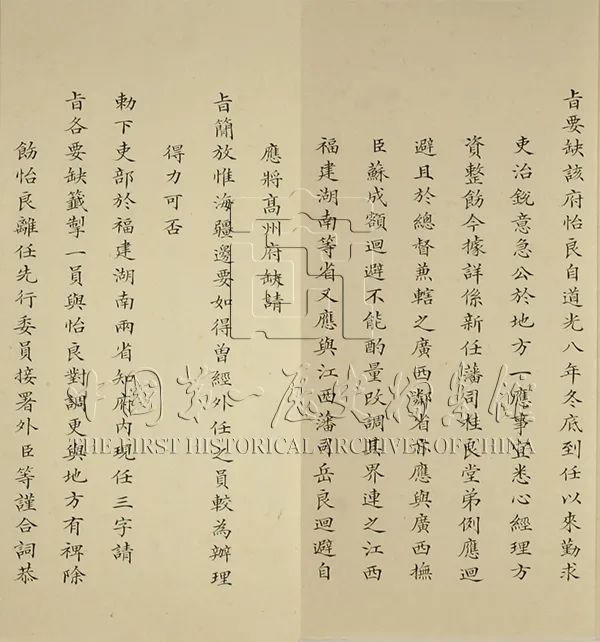 旨要缺該府怡良自道光八年冬底到任以來勤求
吏治銳意急公於地方一應事宜悉心經理方
資整飭今據詳係新任藩司桂良堂弟例應迴
避且於總督兼轄之廣西鄰省亦應與廣西撫
臣蘇成額迴避不能酌量改調其界連之江西
福建湖南等省又應與江西藩司岳良迴避自
應將高州府缺請
旨簡放惟海疆邊要如得曾經外任之員較為辦理
得力可否
勅下吏部於福建湖南兩省知府內現任三字請
旨各要缺籤掣一員與怡良對調更與地方有裨除
飭怡良離任先行委員接署外臣等謹合詞恭
中國第一歷史檔案館
THE FIRST HISTORICAL ARCHIVES OF CHINA